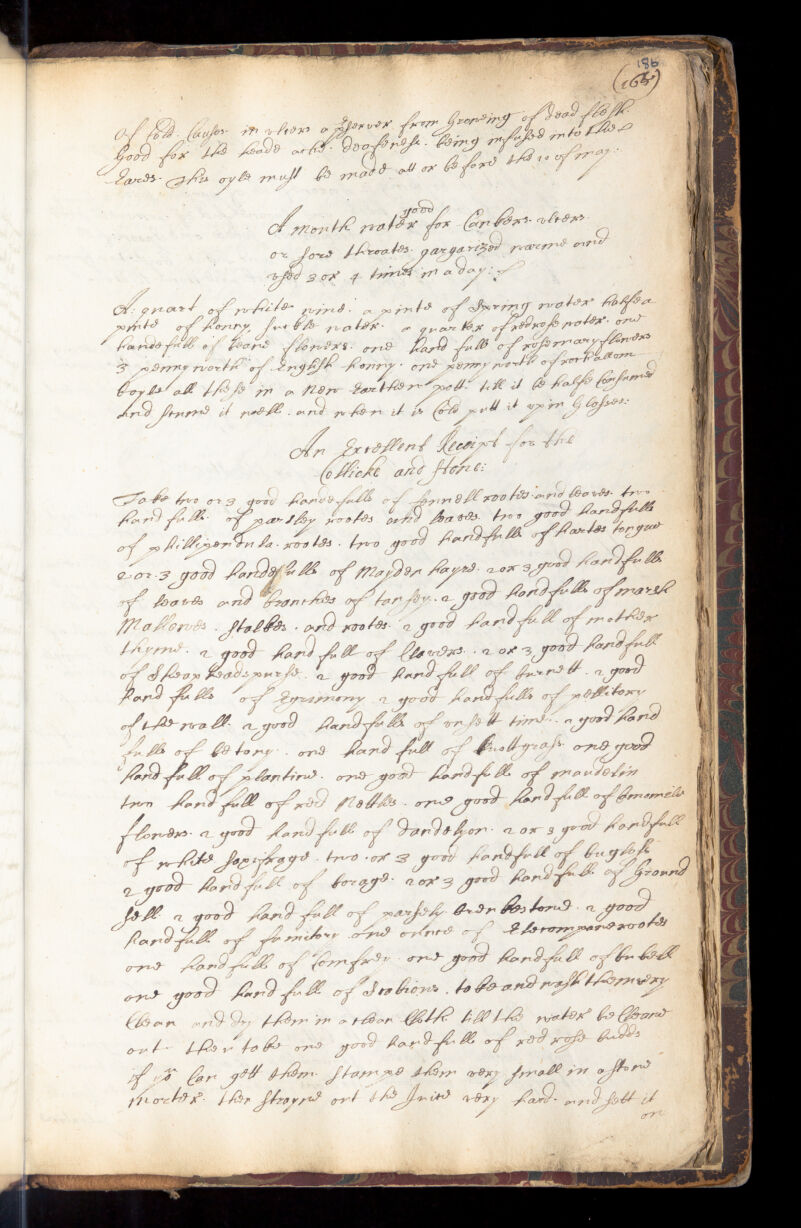 186
(165)
of Cold Causes in ulsers a p̲server from Groweing of dead flesh
Good for the heade ache. deafenesse. being infused into the
Eares. This oyle must be made att or before the 10 of may:
A mouth water good for Cankers ulsers
or sore throates gargarized warme and
used 3 or 4 times in a day:
A: quart of white wine: a pinte of Spring water halfe a
pinte of honny suckle water. a quarter of red rose water. one
handefull of beane flowers. one hand full of rosemary flowers
3 pennyworth of English honny. one penny worth of roch allom
boyle all these in a new Earthen pott till it be halfe Consumed
and straine it well. and when it is Cold putt it up in Glasses:
An Excellent Receipt for the
Collicke and stone:
Take two or 3 good handefulls of fennell rootes and leaves. two
hand fulls of parsley rootes and leaves two good handfulls
of phillipendula rootes. two good handfulls of hartes tongue
2 or 3 good handefulls of Mayden hayre. 2 or 3 good handfulls
of leaves and branches of tansey. 2 good handfulls of marsh
Mallowes. stalkes. and rootes. 2 good hand full of mother
thyme. 2 good hand full of Clavers. 2 or 3 good handfull
of Sheapheads purse. 2 good handfull of burnett. 2 good
hand fulls of Egrimony. 2 good handfulls of pellitory
of the wall. 2 good handfulls of unsett time. 2 good hand
fulls of betony. one hand full of knottgrass one good
handfull of plantine. one good handfull of maudelin
two hand full of red Nettles. one good handfull of Camomile
flowers. 2 good handfull of dandelyon. 2 or 3 good handfull
of white saxifrage. two. or 3 good handfull of buglosse
2 good handfull of borage. 2 or 3 good handfull of Ground
sell 2 good hand full of parsely breakestone. 2 good
handfull of fumitory one ounce of Elecompane rootes
one handfull of Comfrey. one good handfull of bubell
one good handfull of Scabious. take and wash them very
Cleane and dry them in a clean Cloth till the water be Cleane
out. then take one good handfull of red rose budds
if you Can gett them. stampe them very small in a stone
morter. then strayne out the Juice very hard. and sett it
on